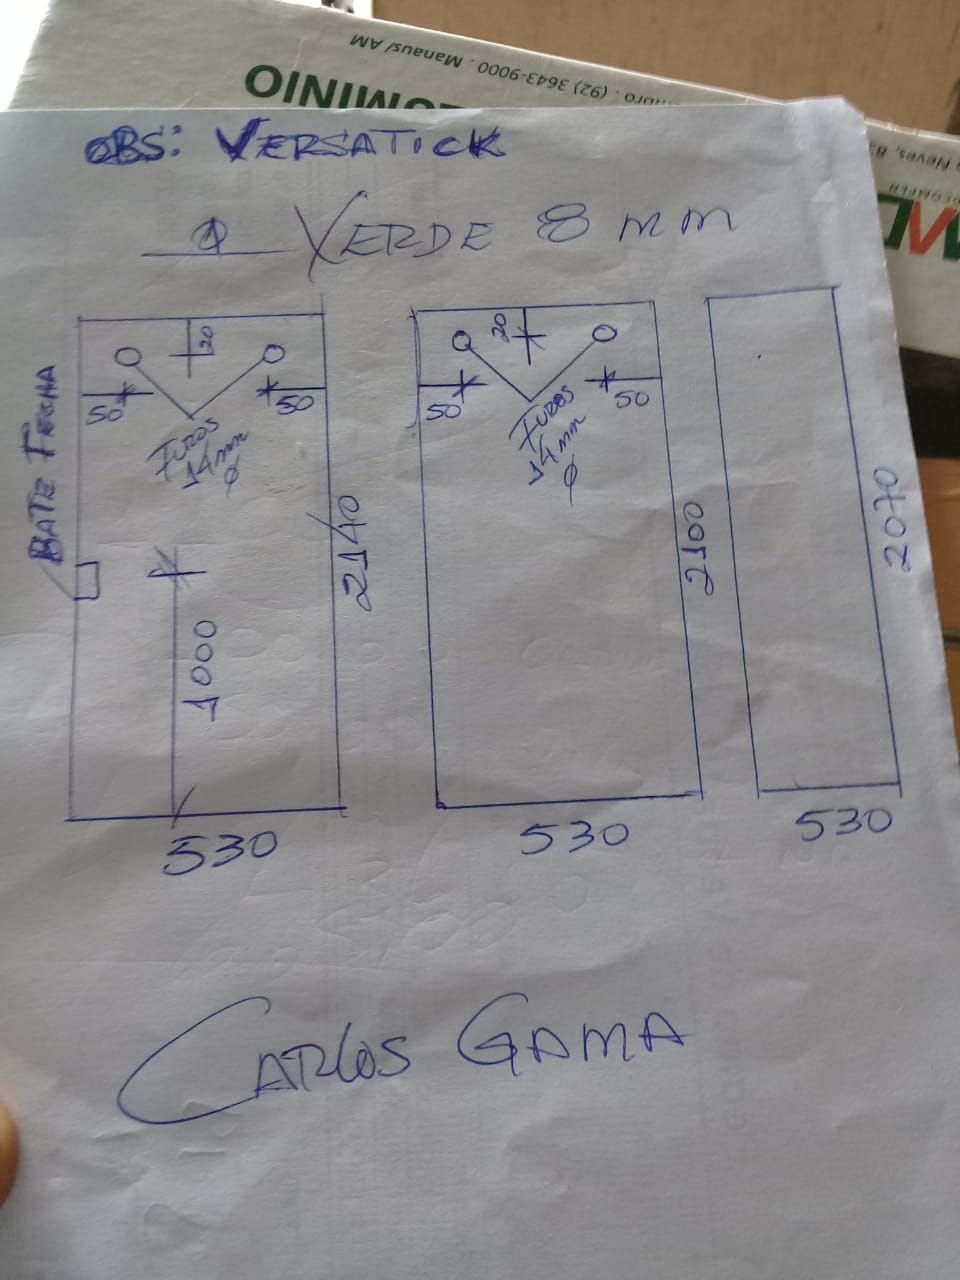 Manaus/AM
(92) 3643-9000 .
OMINIO
Neves, 8
OBS: VERSATICK
1 VERDE 8 mm
BATE FECHA
20
50
50
FUROS
14mm
Ø
1000
2140
530
20
50
50
FUROS
14mm
Ø
2100
530
2070
530
CARLOS GAMA